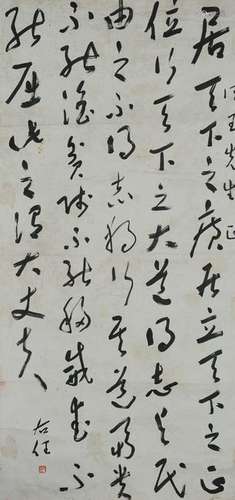 玉先生正
居天下之廣居立天下之正
位行天下之大道得志与民
由之不得志獨行其道富貴
不能淫貧賤不能移威武不
能屈此之謂大丈夫
右任